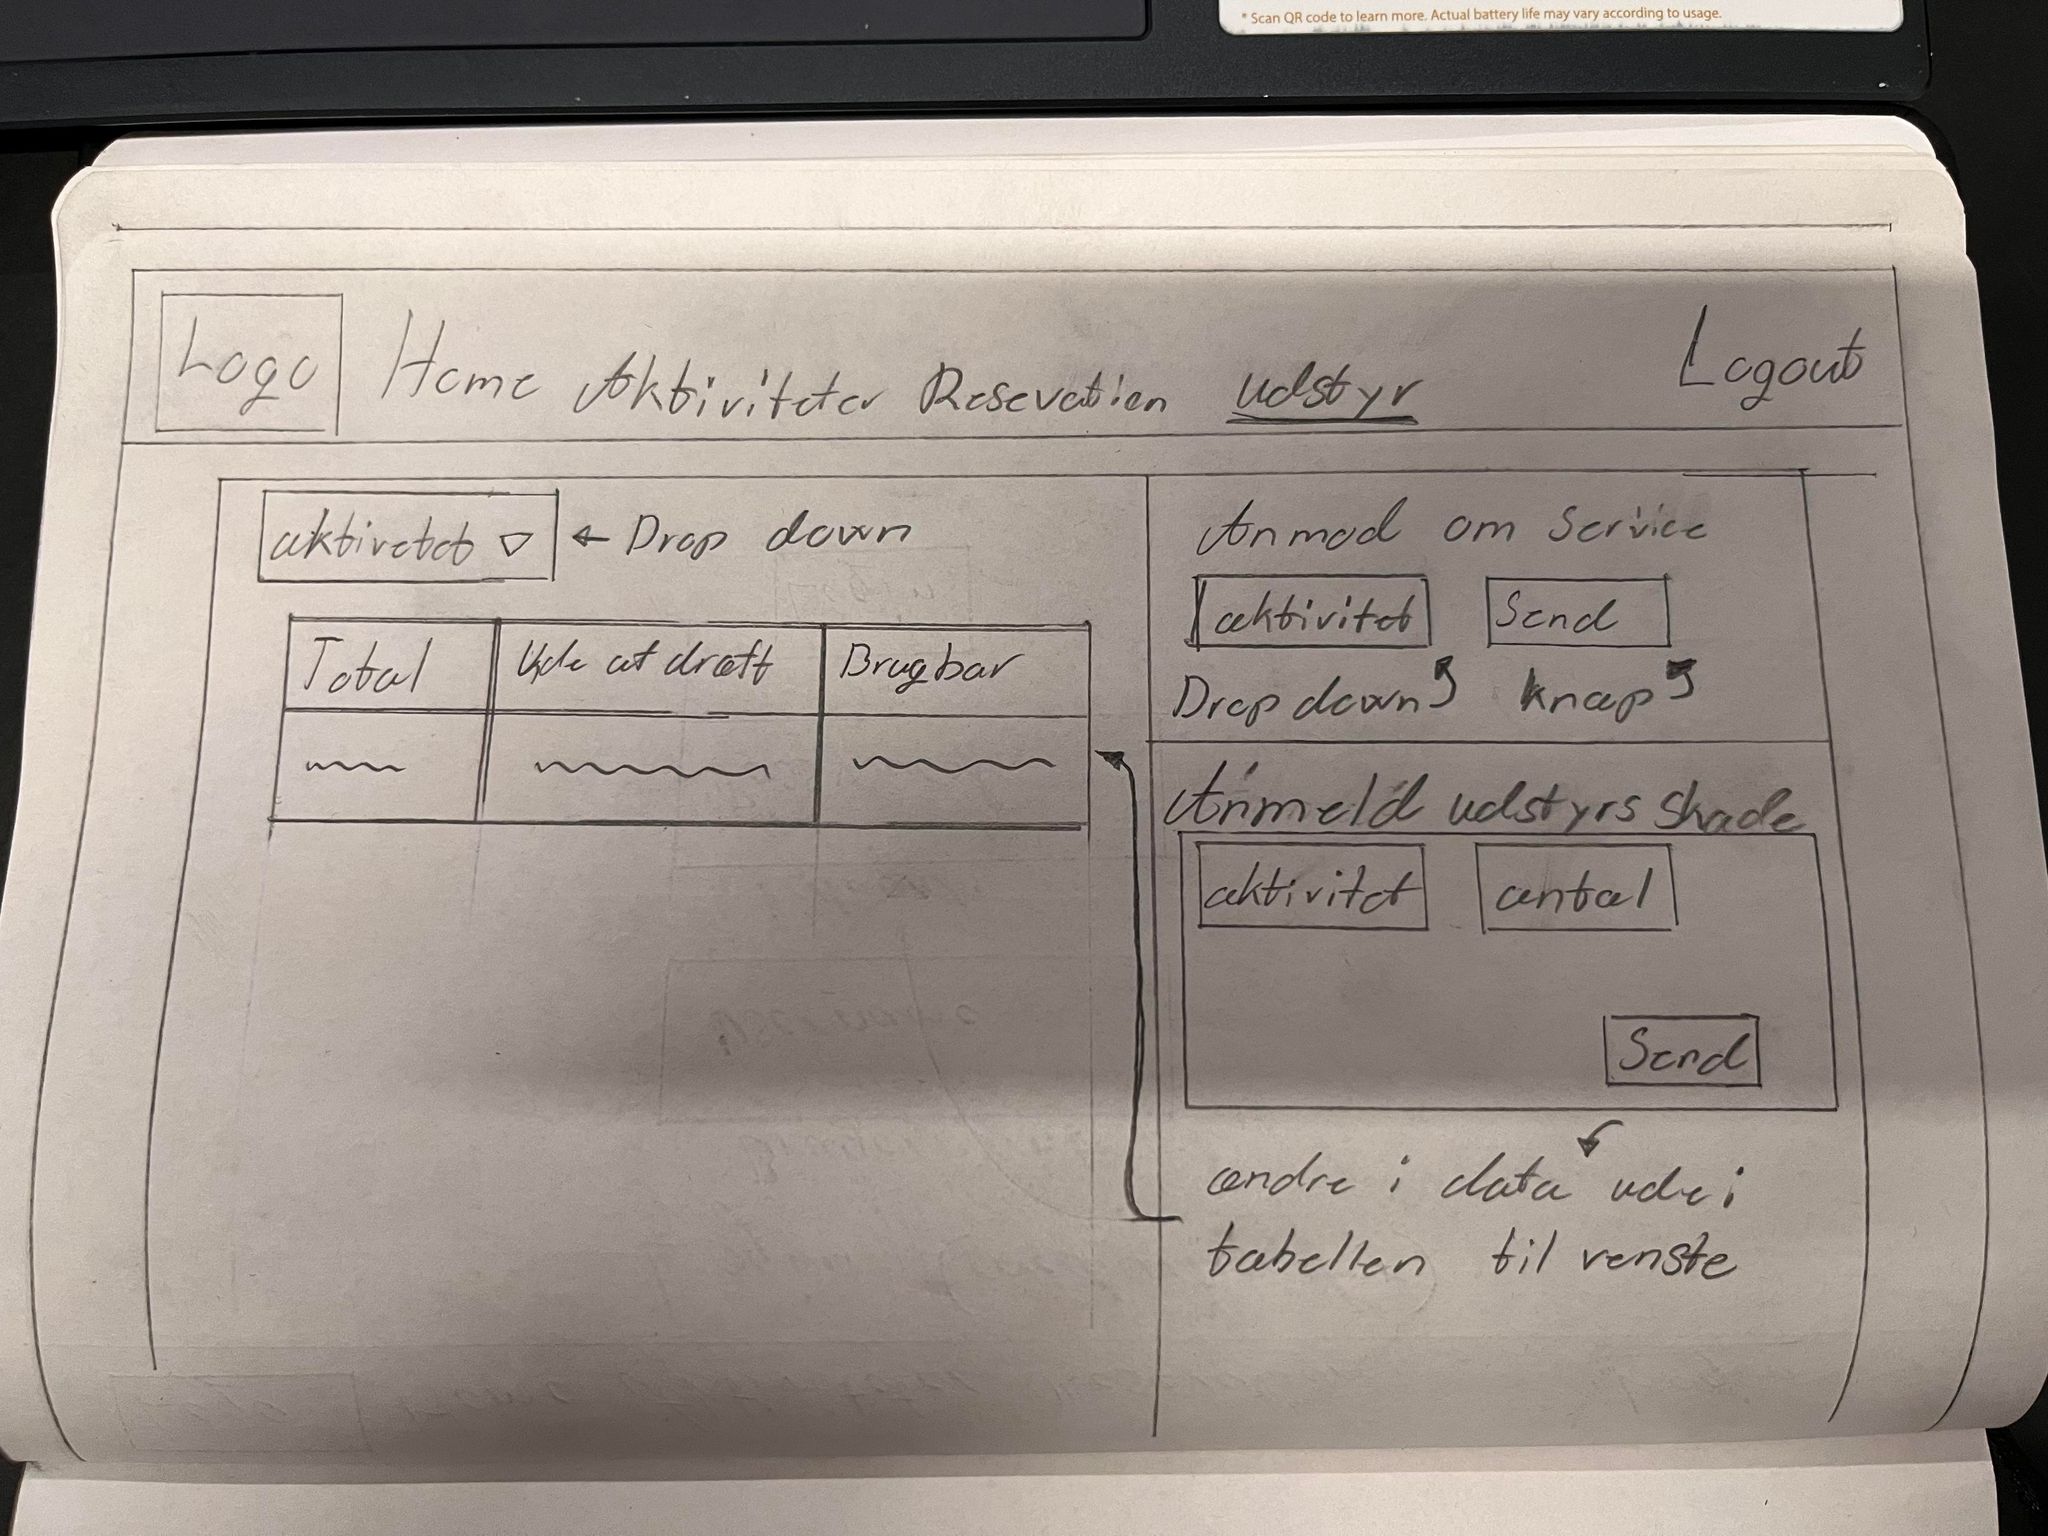 * Scan QR code to learn more. Actual battery life may vary according to usage.
Logo Home Aktiviteter Resevation udstyr Logout
aktivetet ▽ ← Drop down
Total Ude at dreft Brugbar
Anmod om Service
aktivitet Send
Drop down knap
Anmeld udstyrs skade
aktivitet antal
Send
ændre i data ude i
tabellen til venste